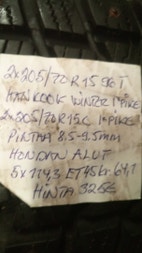 2x205/70R15 96T
HANKOOK WINTER I*PIKE
2x205/70R15C I*PIKE
PINTAA 8.5-9.5mm
HONDAN ALUT
5x114,3 ET45 kr. 64,1
HINTA 325€